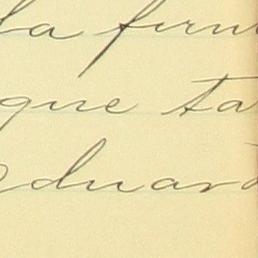 la firm
que ta
Eduard